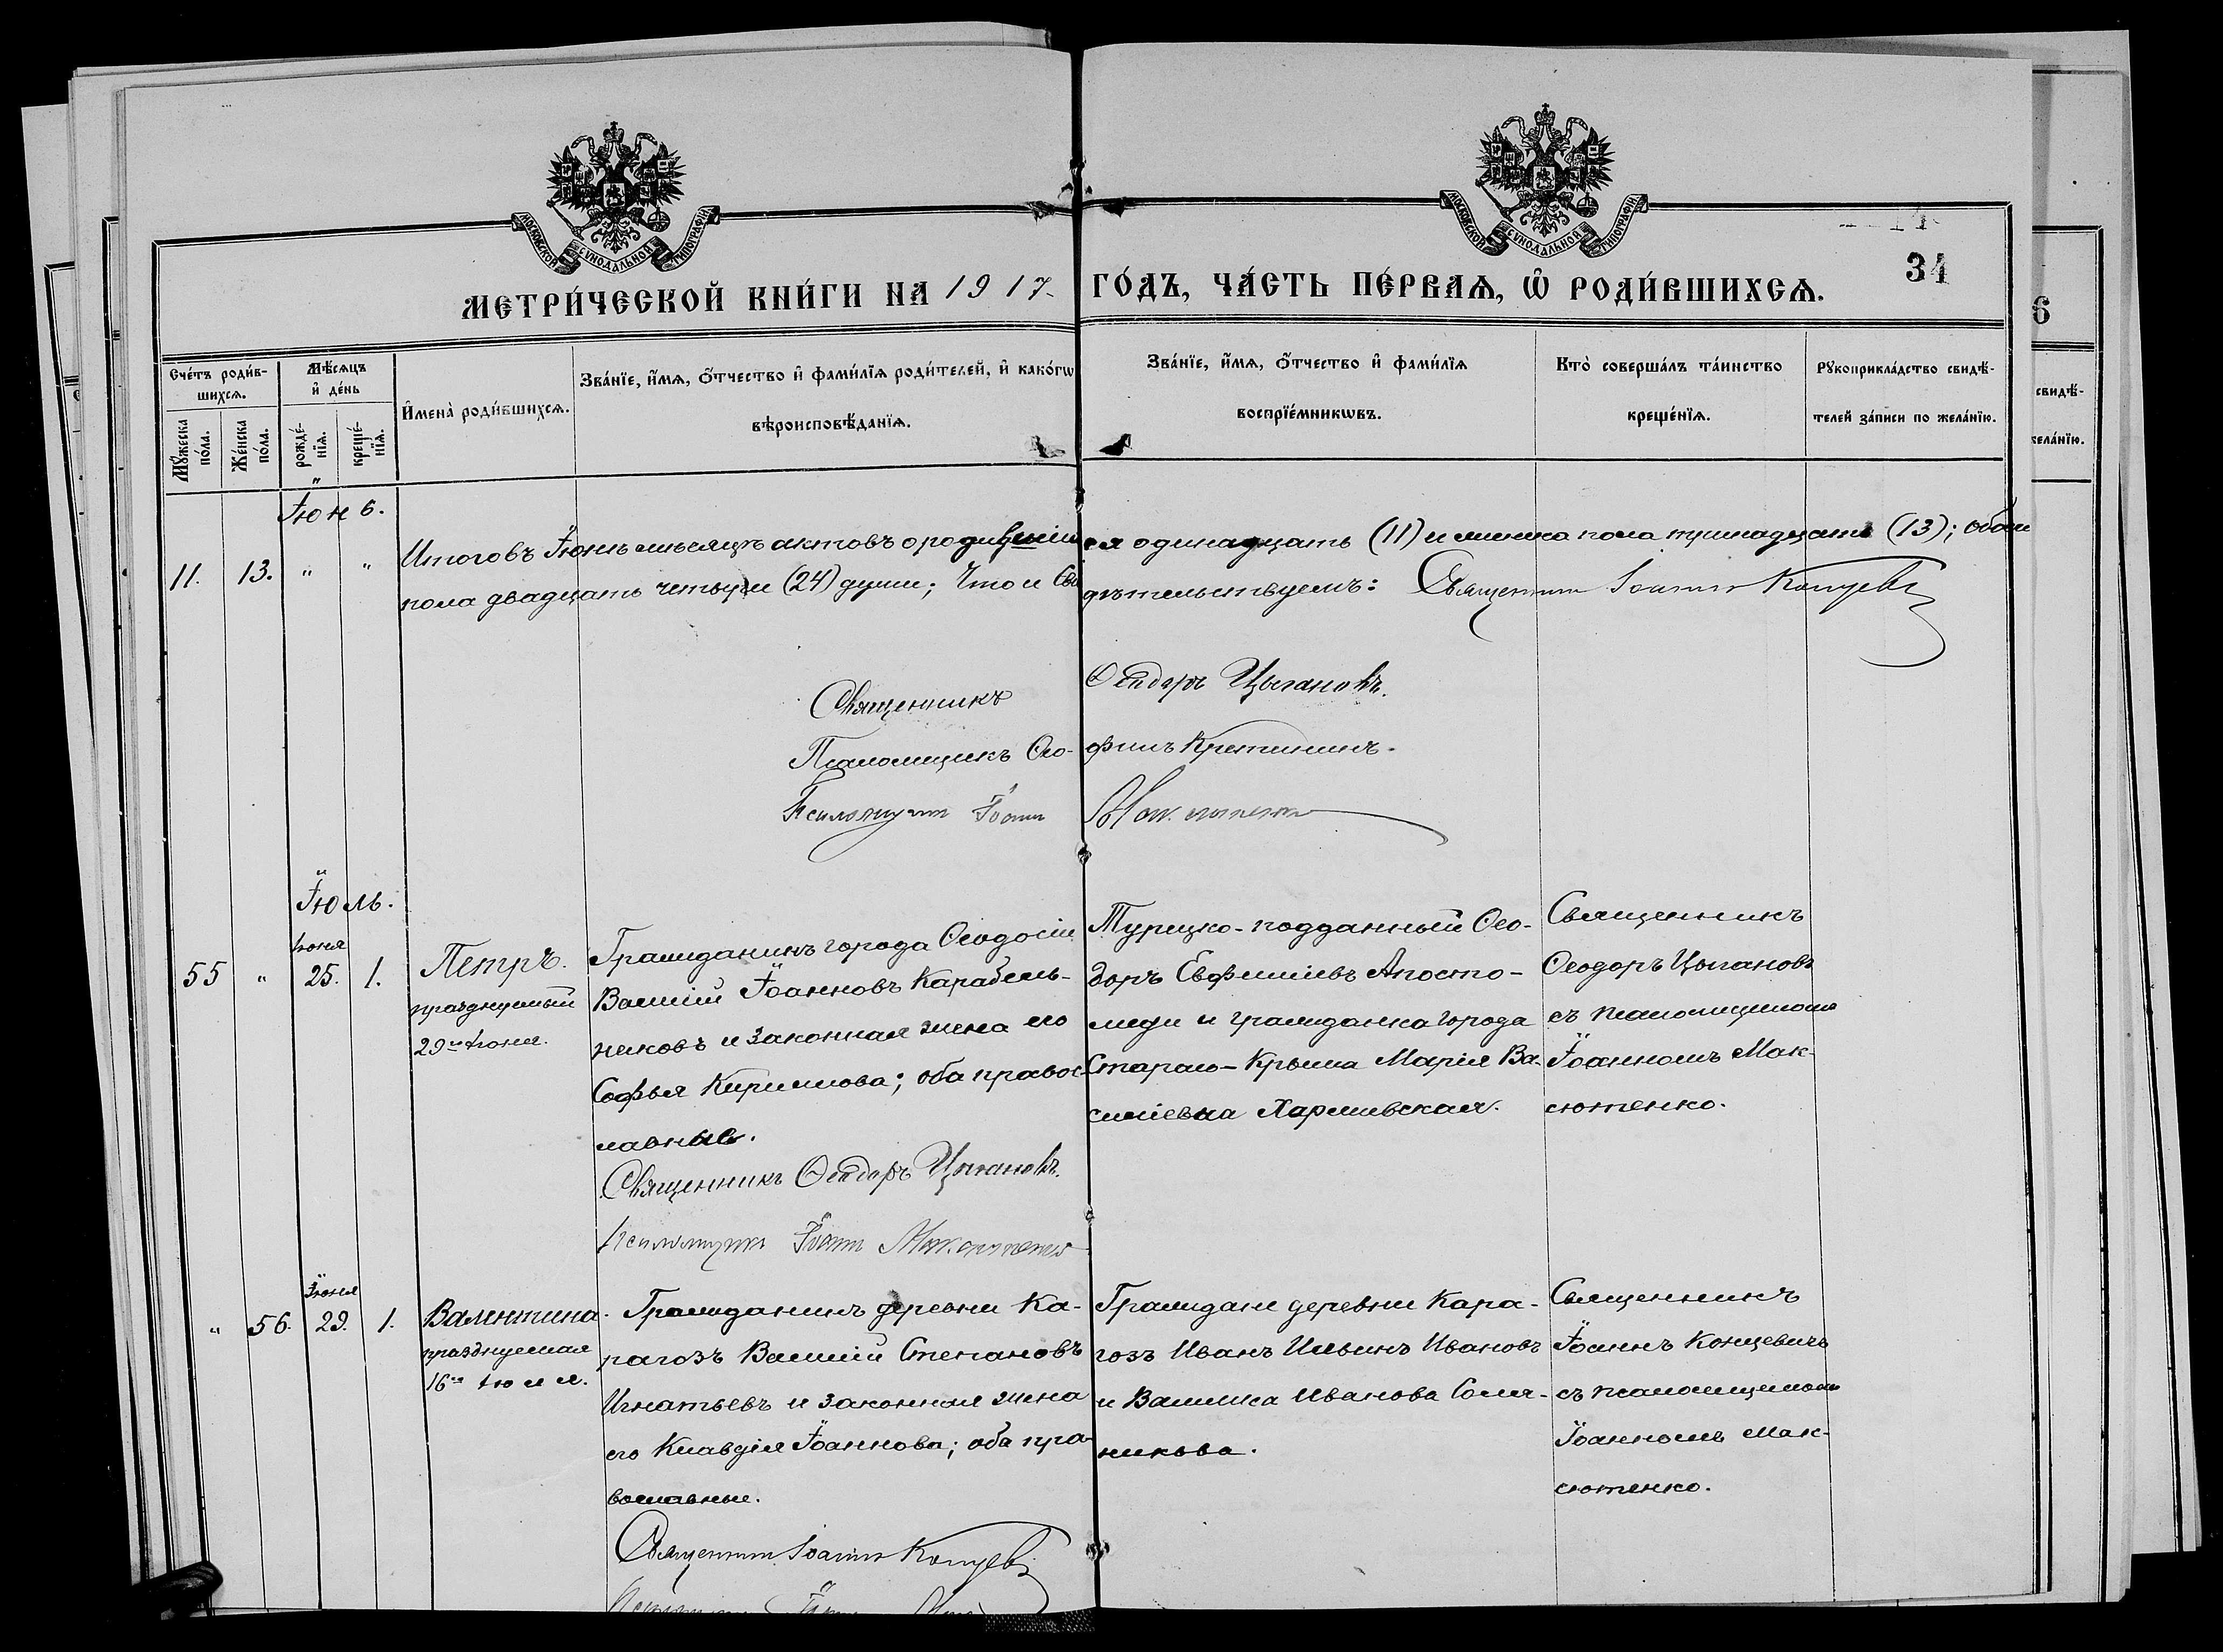 МОСКОВСКОЙ СѴНОДАЛЬНОЙ ТИПОГРАФІИ
МОСКОВСКОЙ СѴНОДАЛЬНОЙ ТИПОГРАФІИ
34
МЕТРИ́ЧЕСКОЙ КНИ́ГИ НА 1917 ГО́ДЪ, ЧА́СТЬ ПЕ́РВАѦ, Ѡ РОДИ́ВШИХСѦ.
6
Сче́тъ роди́в-
шихсѧ.
Мꙋ́жеска
по́ла.
Же́нска
по́ла.
Мѣ́сѧцъ
и҆ де́нь
рожде́-
нїѧ.
креще́-
нїѧ.
И҆мена̀ роди́вшихсѧ.
Зва́нїе, и҆́мѧ, ѻ҆́тчество и҆ фами́лїѧ роди́телей, и҆ како́гѡ
вѣроисповѣ́данїѧ.
Зва́нїе, и҆́мѧ, ѻ҆́тчество и҆ фами́лїѧ
воспрїе́мникѡвъ.
Кто̀ соверша́лъ та́инство
креще́нїѧ.
Рꙋкоприкла́дство свидѣ́-
телей за́писи по жела́нїю.
свидѣ́-
жела́нїю.
Іюнь.
11. 13. " " Итого въ Іюнѣ мѣсяцѣ актовъ о родившихся одинадцать (11) и женска пола тринадцать (13); обоего
пола двадцать четыре (24) души; Что и Свидѣтельствуемъ: Священникъ Іоаннъ Концевичъ
Священникъ Ѳеодоръ Цыгановъ.
Псаломщикъ Ѳеофилъ Кретининъ.
Псаломщикъ Іоаннъ Максютенко
Іюль.
55 " Іюня 25. 1.
Петръ.
празднуемый
29го Іюня.
Гражданинъ города Ѳеодосіи
Василій Іоанновъ Карабель-
никовъ и законная жена его
Софья Кириллова; оба правос-
лавные.
Священникъ Ѳеодоръ Цыгановъ.
Псаломщикъ Іоаннъ Максютенко
Турецко-подданный Ѳео-
доръ Евфиміевъ Апосто-
лиди и гражданка города
Стараго-Крыма Марія Ва-
силіевна
Священникъ
Ѳеодоръ Цыгановъ
съ псаломщикомъ
Іоанномъ Мак-
сютенко.
" 56. Іюня 29. 1.
Валентина.
празднуемая
16го Іюля.
Гражданинъ деревни Ка-
рагозъ Василій Степановъ
Игнатьевъ и законная жена
его Клавдія Іоаннова; оба пра-
вославные.
Священникъ Іоаннъ Концевичъ
Псаломщикъ Іоаннъ
Граждане деревни Кара-
гозъ Иванъ Ильинъ Ивановъ
и Василиса Иванова
Священникъ
Іоаннъ Концевичъ
съ псаломщикомъ
Іоанномъ Мак-
сютенко.